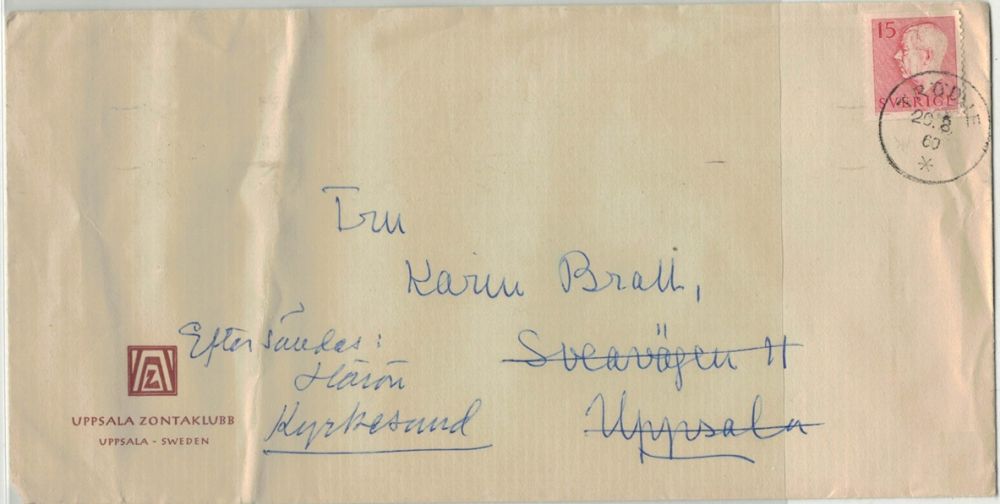 15
SVERIGE
20.8.
60
Fru
Karin Bratt,
Sveavägen 11
Uppsala
Eftersändas:
Härön
Kyrkesund
UPPSALA ZONTAKLUBB
UPPSALA - SWEDEN